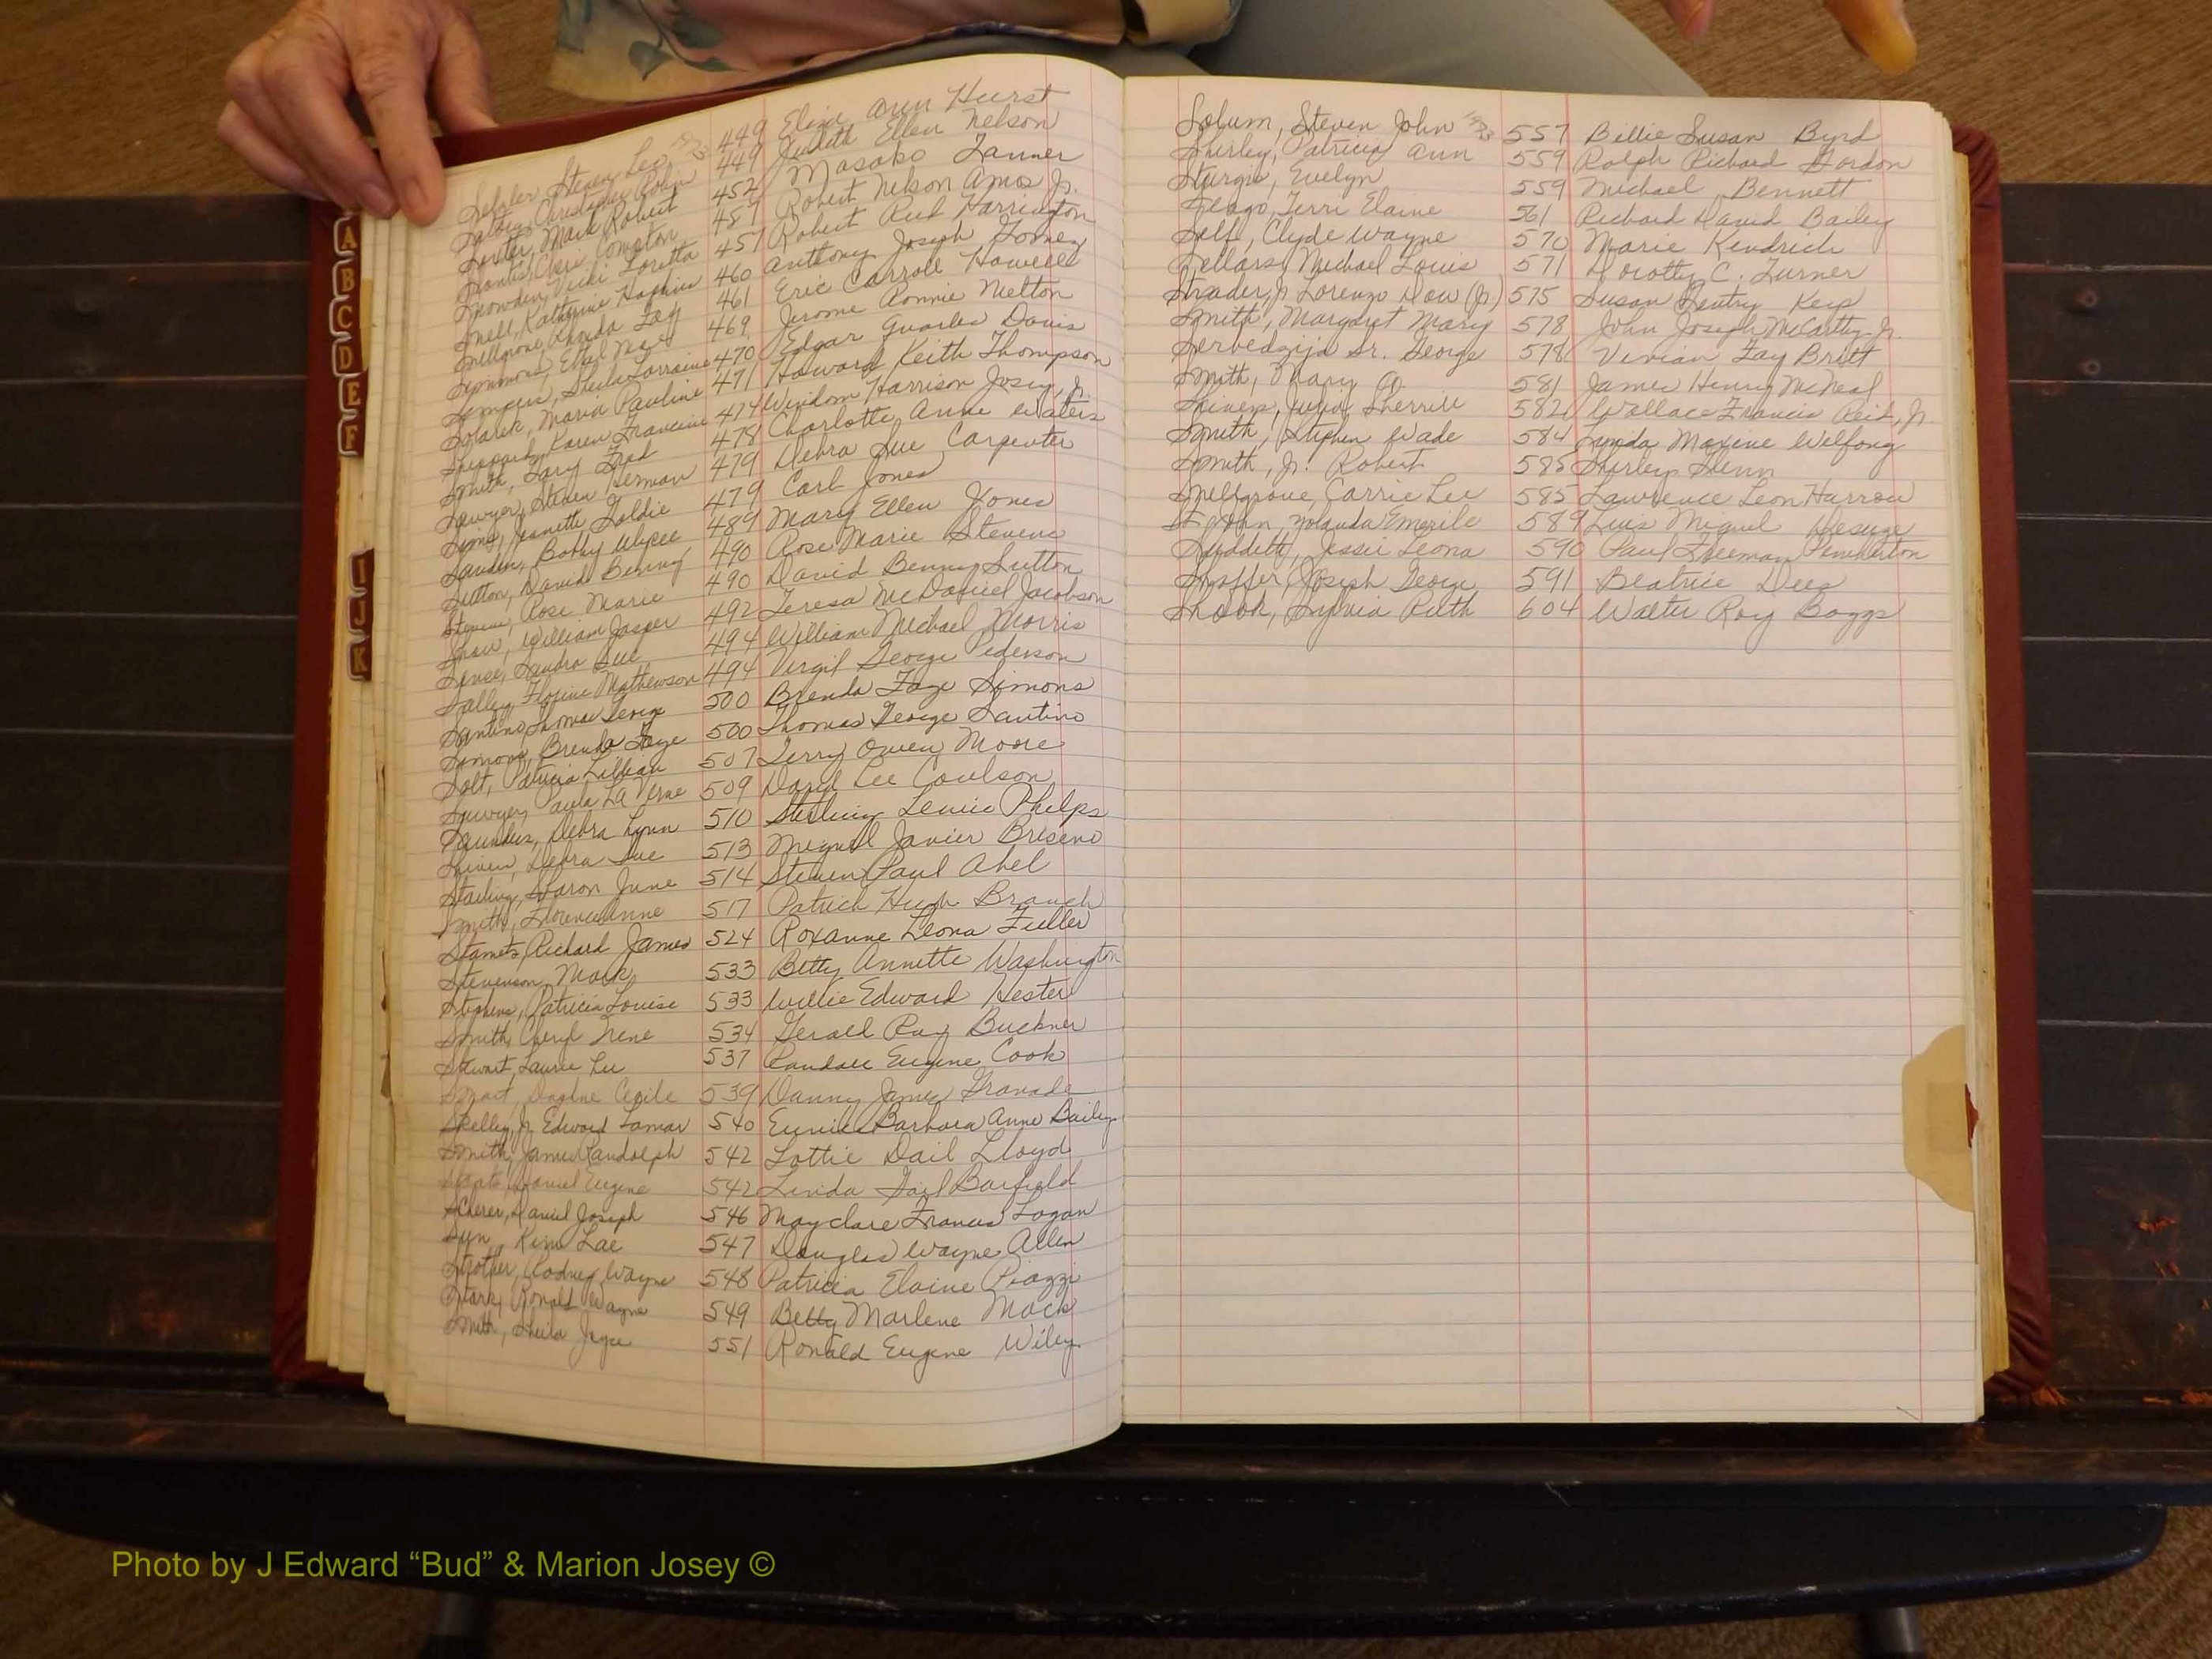 A
B
C
D
E
F
I
J
K
Steven Leo 449 Elaine Ann Hurst
Christopher Robin 449 Judith Ellen Nelson
Mark Robert 452 Masako Tanner
Clare Compton 457 Robert Nelson Amos Jr.
Snowden, Vicki Loretta 457 Robert Reed Harrington
Snell, Katherine Hopkins 460 Anthony Joseph Gomez
Snellgrove, Rhonda Fay 461 Eric Carroll Howell
Symmons, Ethel Mae 469 Jerome Ronnie Melton
Semper, Sheila Lorraine 470 Edgar Quarles Davis
Solarek, Maria Pauline 471 Howard Keith Thompson
Sheppard, Karen Francine 474 Windom Harrison Josey, Jr.
Smith, Gary 478 Charlotte Anne Waters
Sawyer, Steven Herman 479 Debra Sue Carpenter
Sims, Jeanette Goldie 479 Carl Jones
Bobby 489 Mary Ellen Jones
Sutton, David Benny 490 Rose Marie Stevens
Stevens, Rose Marie 490 David Benny Sutton
Shaw, William Jasper 492 Teresa McDaniel Jacobson
Sandra Sue 494 William Michael Morris
Salley, Florine Mathewson 494 Virgil George Pederson
Santino, Thomas George 500 Brenda Faye Simons
Simons, Brenda Faye 500 Thomas George Santino
Solt, Patricia Lillian 507 Terry Owen Moore
Sawyer, Paula La Verne 509 David Lee Coulson
Saunders, Debra Lynn 510 Sterling Phelps
Debra Sue 513 Miguel Javier Briseno
Starling, Sharon June 514 Steven Paul Abel
Smith, Florence Anne 517 Patrick Hugh Branch
Stamets, Richard James 524 Roxanne Leona Fuller
Stevenson, Mack 533 Betty Annette Washington
Stephens, Patricia Louise 533 Willie Edward Hester
Smith, Cheryl Irene 534 Gerald Ray Buckner
Stewart, Laurie Lee 537 Randall Eugene Cook
Smart, Daphne Cecile 539 Danny James Granade
Skelley, Jr. Edward Lamar 540 Eunice Barbara Anne Bailey
Smith, James Randolph 542 Lottie Dail Lloyd
Daniel Eugene 542 Linda Gail Barfield
Scherer, David Joseph 546 Mayclare Frances Logan
Syn, Kim Lae 547 Douglas Wayne Allen
Strother, Rodney Wayne 548 Patricia Elaine Piazzi
Stark, Ronald Wayne 549 Betty Marlene Mack
Smith, Sheila Joyce 551 Ronald Eugene Wiley
Solum, Steven John 557 Billie Susan Byrd
Shirley, Patricia Ann 559 Ralph Richard Gordon
Sturgis, Evelyn 559 Michael Bennett
Seago, Terri Elaine 561 Richard David Bailey
Self, Clyde Wayne 570 Marie Kendrick
Sellars, Michael Louis 571 Dorothy C. Turner
Strader, Jr Lorenzo Dow (Jr.) 575 Susan Gentry
Smith, Margaret Mary 578 John Joseph McCarthy Jr.
Serbedzija Sr. George 578 Vivian Fay Britt
Smith, Mary A. 581 James Henry McNeal
Sherrill 582 Wallace Francis Reid, Jr.
Smith, Stephen Wade 584 Linda Maxine Welfong
Smith, Jr. Robert 585 Shirley Glenn
Snellgrove, Carrie Lee 585 Lawrence Leon Harrow
St John, Yolanda 589 Luis Miguel
Suddeth, Jessie Leona 590 Paul Freeman Pemberton
Shaffer, Joseph George 591 Beatrice Dees
Shook, Sylvia Ruth 604 Walter Roy Boggs
Photo by J Edward “Bud” & Marion Josey ©